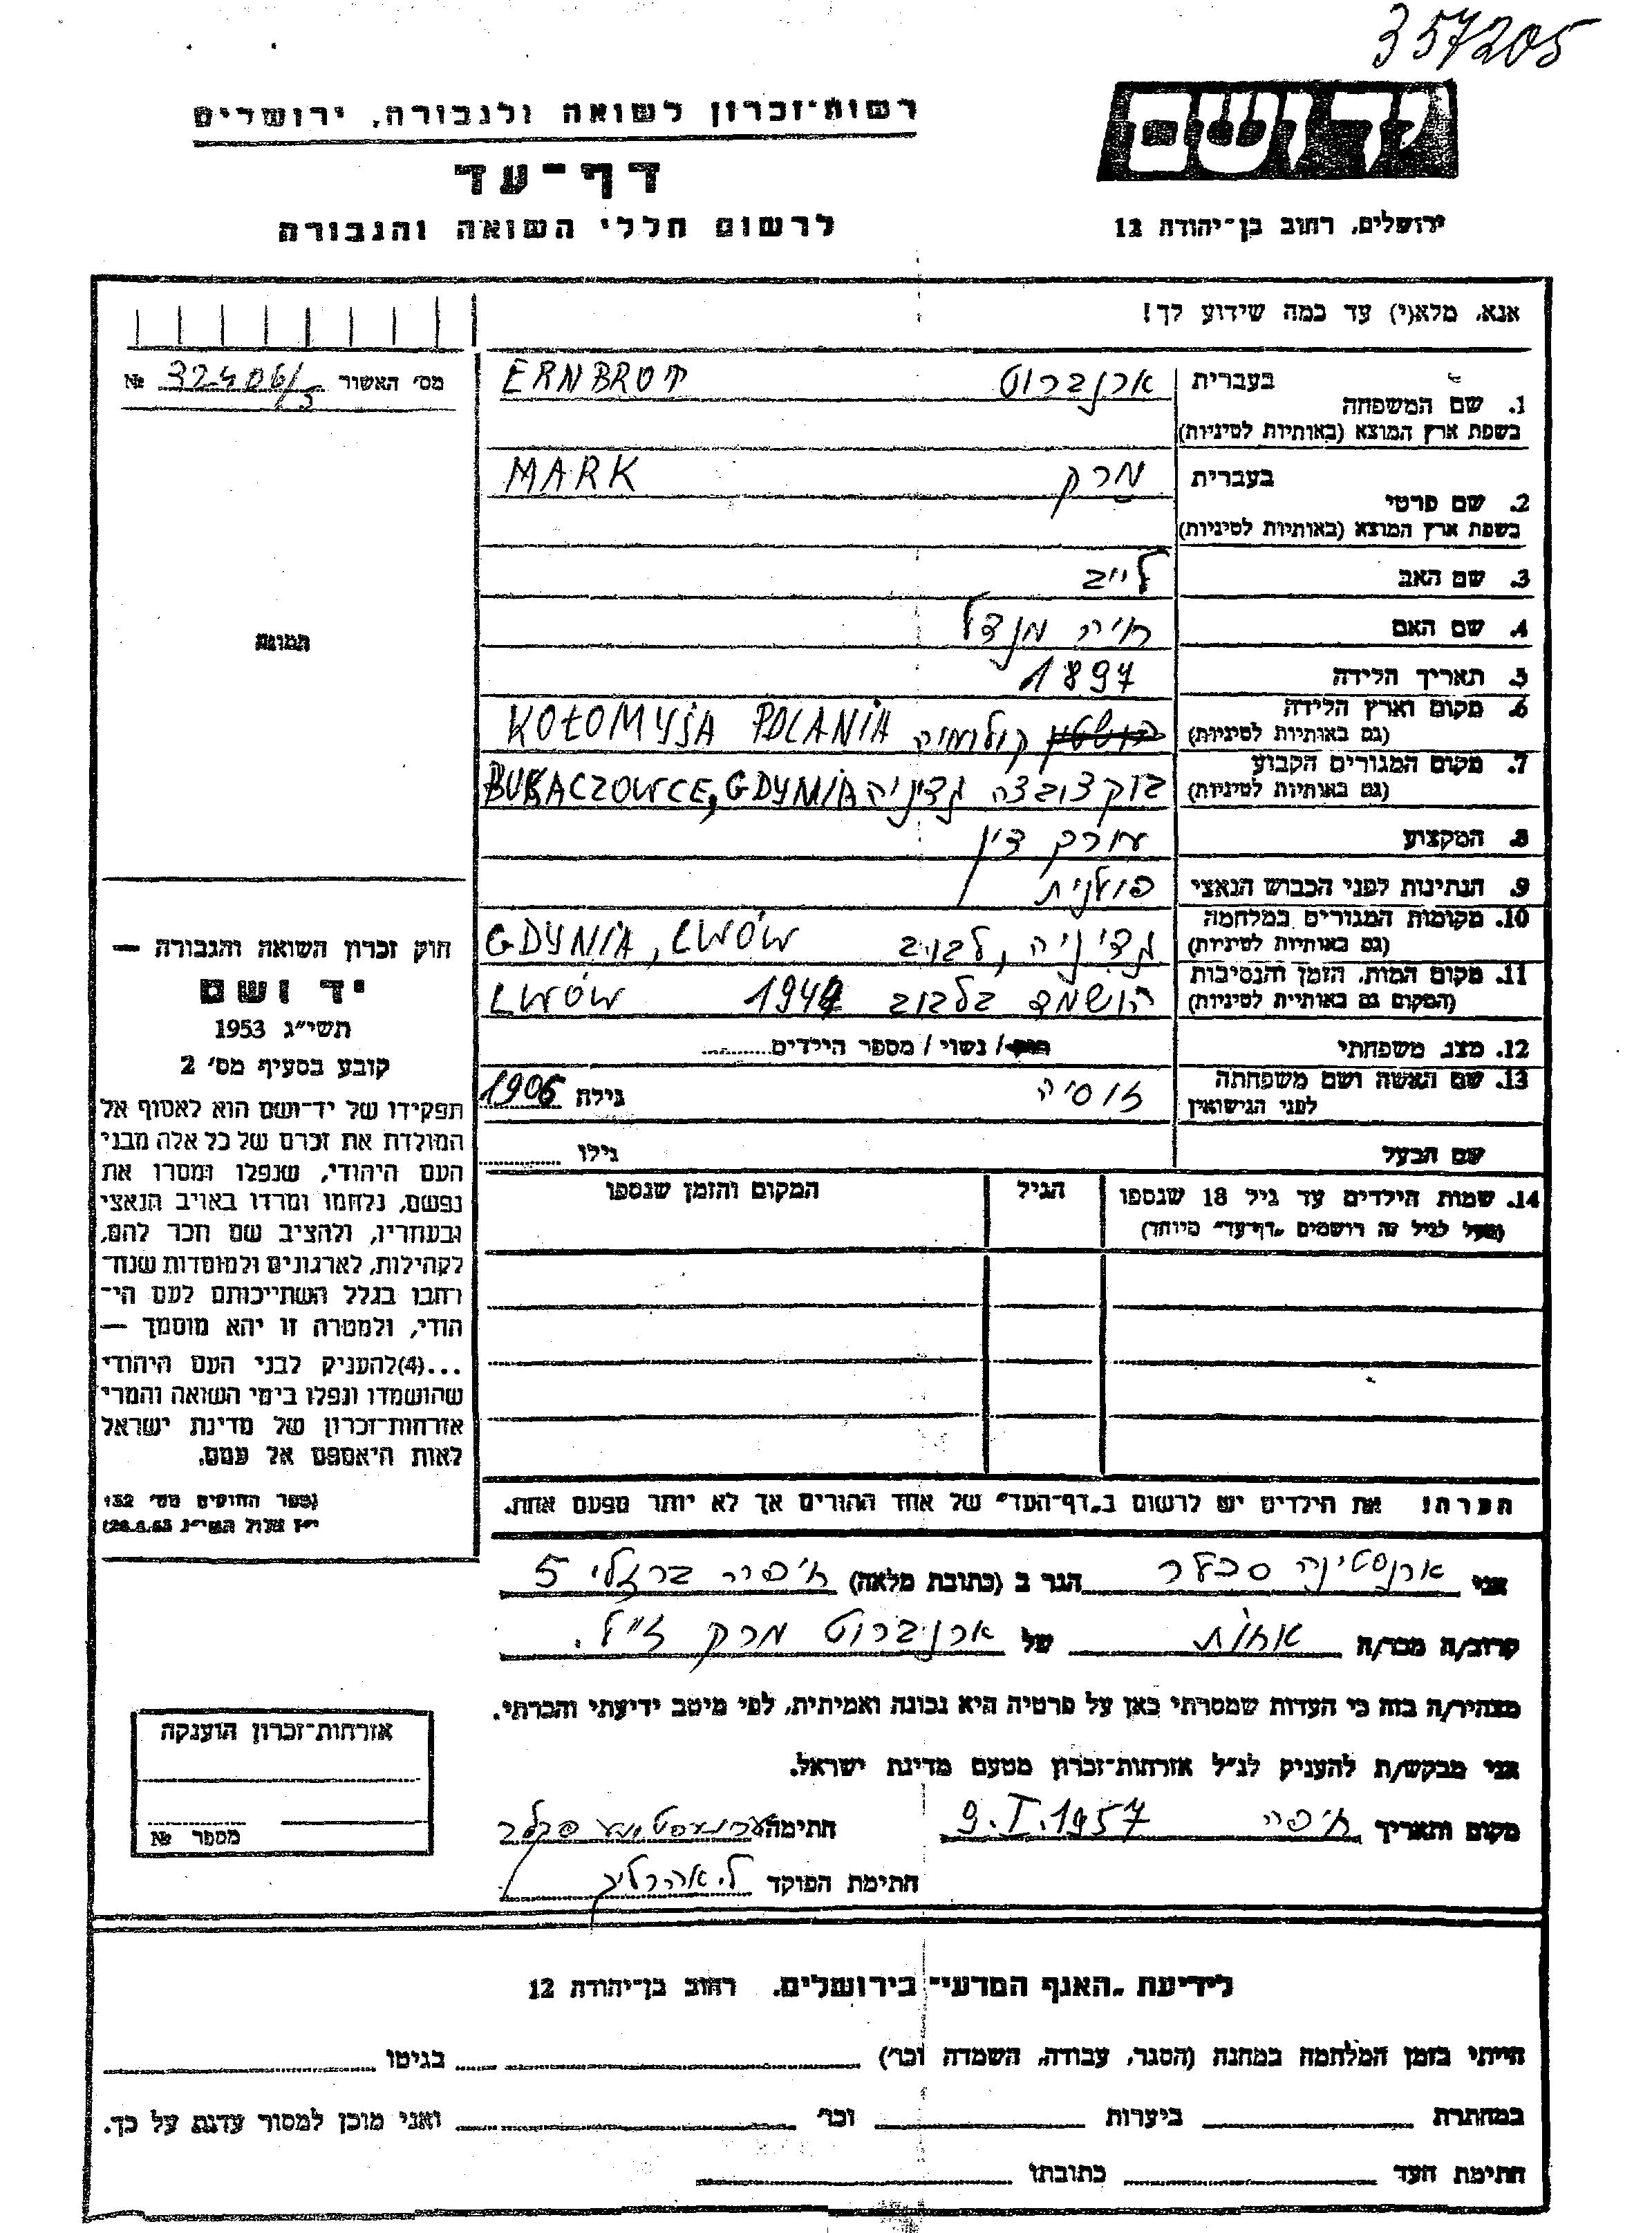 357205
יד ושם
רשות־זכרון לשואה ולגבורה, ירושלים
דף־עד
לרשום חללי השואה והגבורה
ירושלים, רחוב בן־יהודה 12
אנא, מלא(י) עד כמה שידוע לך!
מס׳ האשור № 32406/
1. שם המשפחה
בעברית ארנברוט ERNBROT
בשפת ארץ המוצא (באותיות לטיניות)
2. שם פרטי
בעברית מרק MARK
בשפת ארץ המוצא (באותיות לטיניות)
3. שם האב לייב
4. שם האם חיה מנדל
5. תאריך הלידה 1897
6. מקום וארץ הלידה קולומיה KOŁOMYJA POLANIA
(גם באותיות לטיניות)
7. מקום המגורים הקבוע בוקצובצה גדיניה BUKACZOWCE, GDYNIA
(גם באותיות לטיניות)
8. המקצוע עורך דין
9. הנתינות לפני הכבוש הנאצי פולנית
10. מקומות המגורים במלחמה גדיניה, לבוב GDYNIA, LWÓW
(גם באותיות לטיניות)
11. מקום המות, הזמן והנסיבות הושמד בלבוב 1944 LWÓW
(המקום גם באותיות לטיניות)
12. מצב משפחתי רווק / נשוי / מספר הילדים
13. שם האשה ושם משפחתה זוסיה גילה 1906
לפני הנישואין
שם הבעל גילו
14. שמות הילדים עד גיל 18 שנספו הגיל המקום והזמן שנספו
(מעל לגיל זה רושמים "דף־עד" מיוחד)
הערה! את הילדים יש לרשום ב"דף־העד" של אחד ההורים אך לא יותר מפעם אחת.
תמונה
חוק זכרון השואה והגבורה —
יד ושם
תשי״ג 1953
קובע בסעיף מס׳ 2
תפקידו של יד־ושם הוא לאסוף אל
המולדת את זכרם של כל אלה מבני
העם היהודי, שנפלו ומסרו את
נפשם, נלחמו ומרדו באויב הנאצי
ובעוזריו, ולהציב שם וזכר להם,
לקהילות, לארגונים ולמוסדות שנח־
רבו בגלל השתייכותם לעם הי־
הודי, ולמטרה זו יהא מוסמך —
...(4)להעניק לבני העם היהודי
שהושמדו ונפלו בימי השואה והמרי
אזרחות־זכרון של מדינת ישראל
לאות היאספם אל עמם.
(ספר החוקים מס׳ 132
י״ז אלול תשי״ג 28.8.53)
אני ארנסטינה סכלר הגר ב (כתובת מלאה) חיפה ברזלי 5
קרוב/ה מכר/ה אחות של ארנברוט מרק ז״ל.
מצהיר/ה בזה כי העדות שמסרתי כאן על פרטיה היא נכונה ואמיתית, לפי מיטב ידיעתי והכרתי.
אני מבקש/ת להעניק לנ״ל אזרחות־זכרון מטעם מדינת ישראל.
מקום ותאריך חיפה 9.I.1957 חתימה
חתימת הפוקד
אזרחות־זכרון הוענקה
מספר №
לידיעת "האגף המדעי" בירושלים, רחוב בן־יהודה 12
הייתי בזמן המלחמה במחנה (הסגר, עבודה, השמדה וכו׳) בגיטו
במחתרת ביערות וכו׳ ואני מוכן למסור עדות על כך.
חתימת העד כתובתו